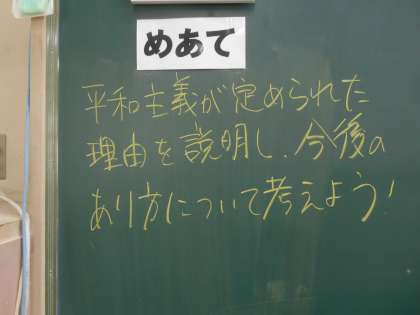 めあて
平和主義が定められた
理由を説明し、今後の
あり方について考えよう!